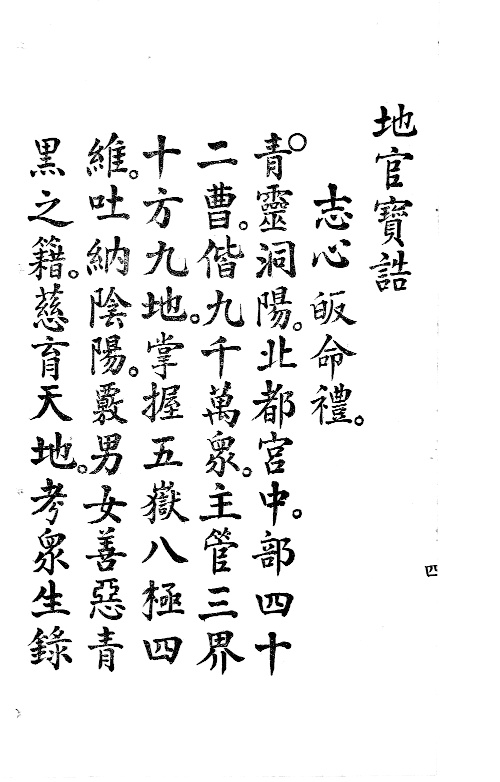 地官寶誥
志心皈命禮。
青靈洞陽。北都宮中。部四十
二曹。偕九千萬眾。主管三界
十方九地。掌握五嶽八極四
維。吐納陰陽。覈男女善惡青
黑之籍。慈育天地。考眾生錄
四